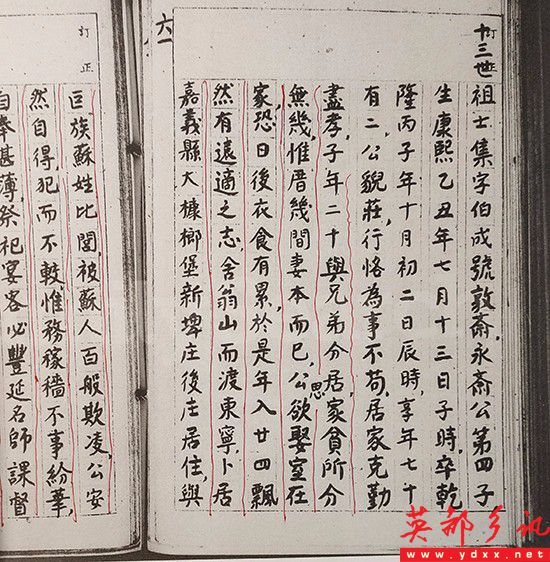 訂正
十三世祖士集字伯成號敦齋永齋公第四子
生康熙乙丑年七月十三日子時卒乾
隆丙子年十月初二日辰時享年七十
有二公貌莊行恪為事不苟居家克勤
盡孝子年二十與兄弟分居家貧所分
無幾惟厝幾間妻本而已公思欲娶室在
家恐日後衣食有累於是年入廿四飄
然有遠適之志舍翁山而渡東寧卜居
嘉義縣大槺榔堡新埤庄後庄居住與
六一
訂正
巨族蘇姓比閭被蘇人百般欺凌公安
然自得犯而不較惟務稼穡不事紛華
自奉甚薄祭祀宴客必豐延名師課督
英都乡讯
www.ydxx.net